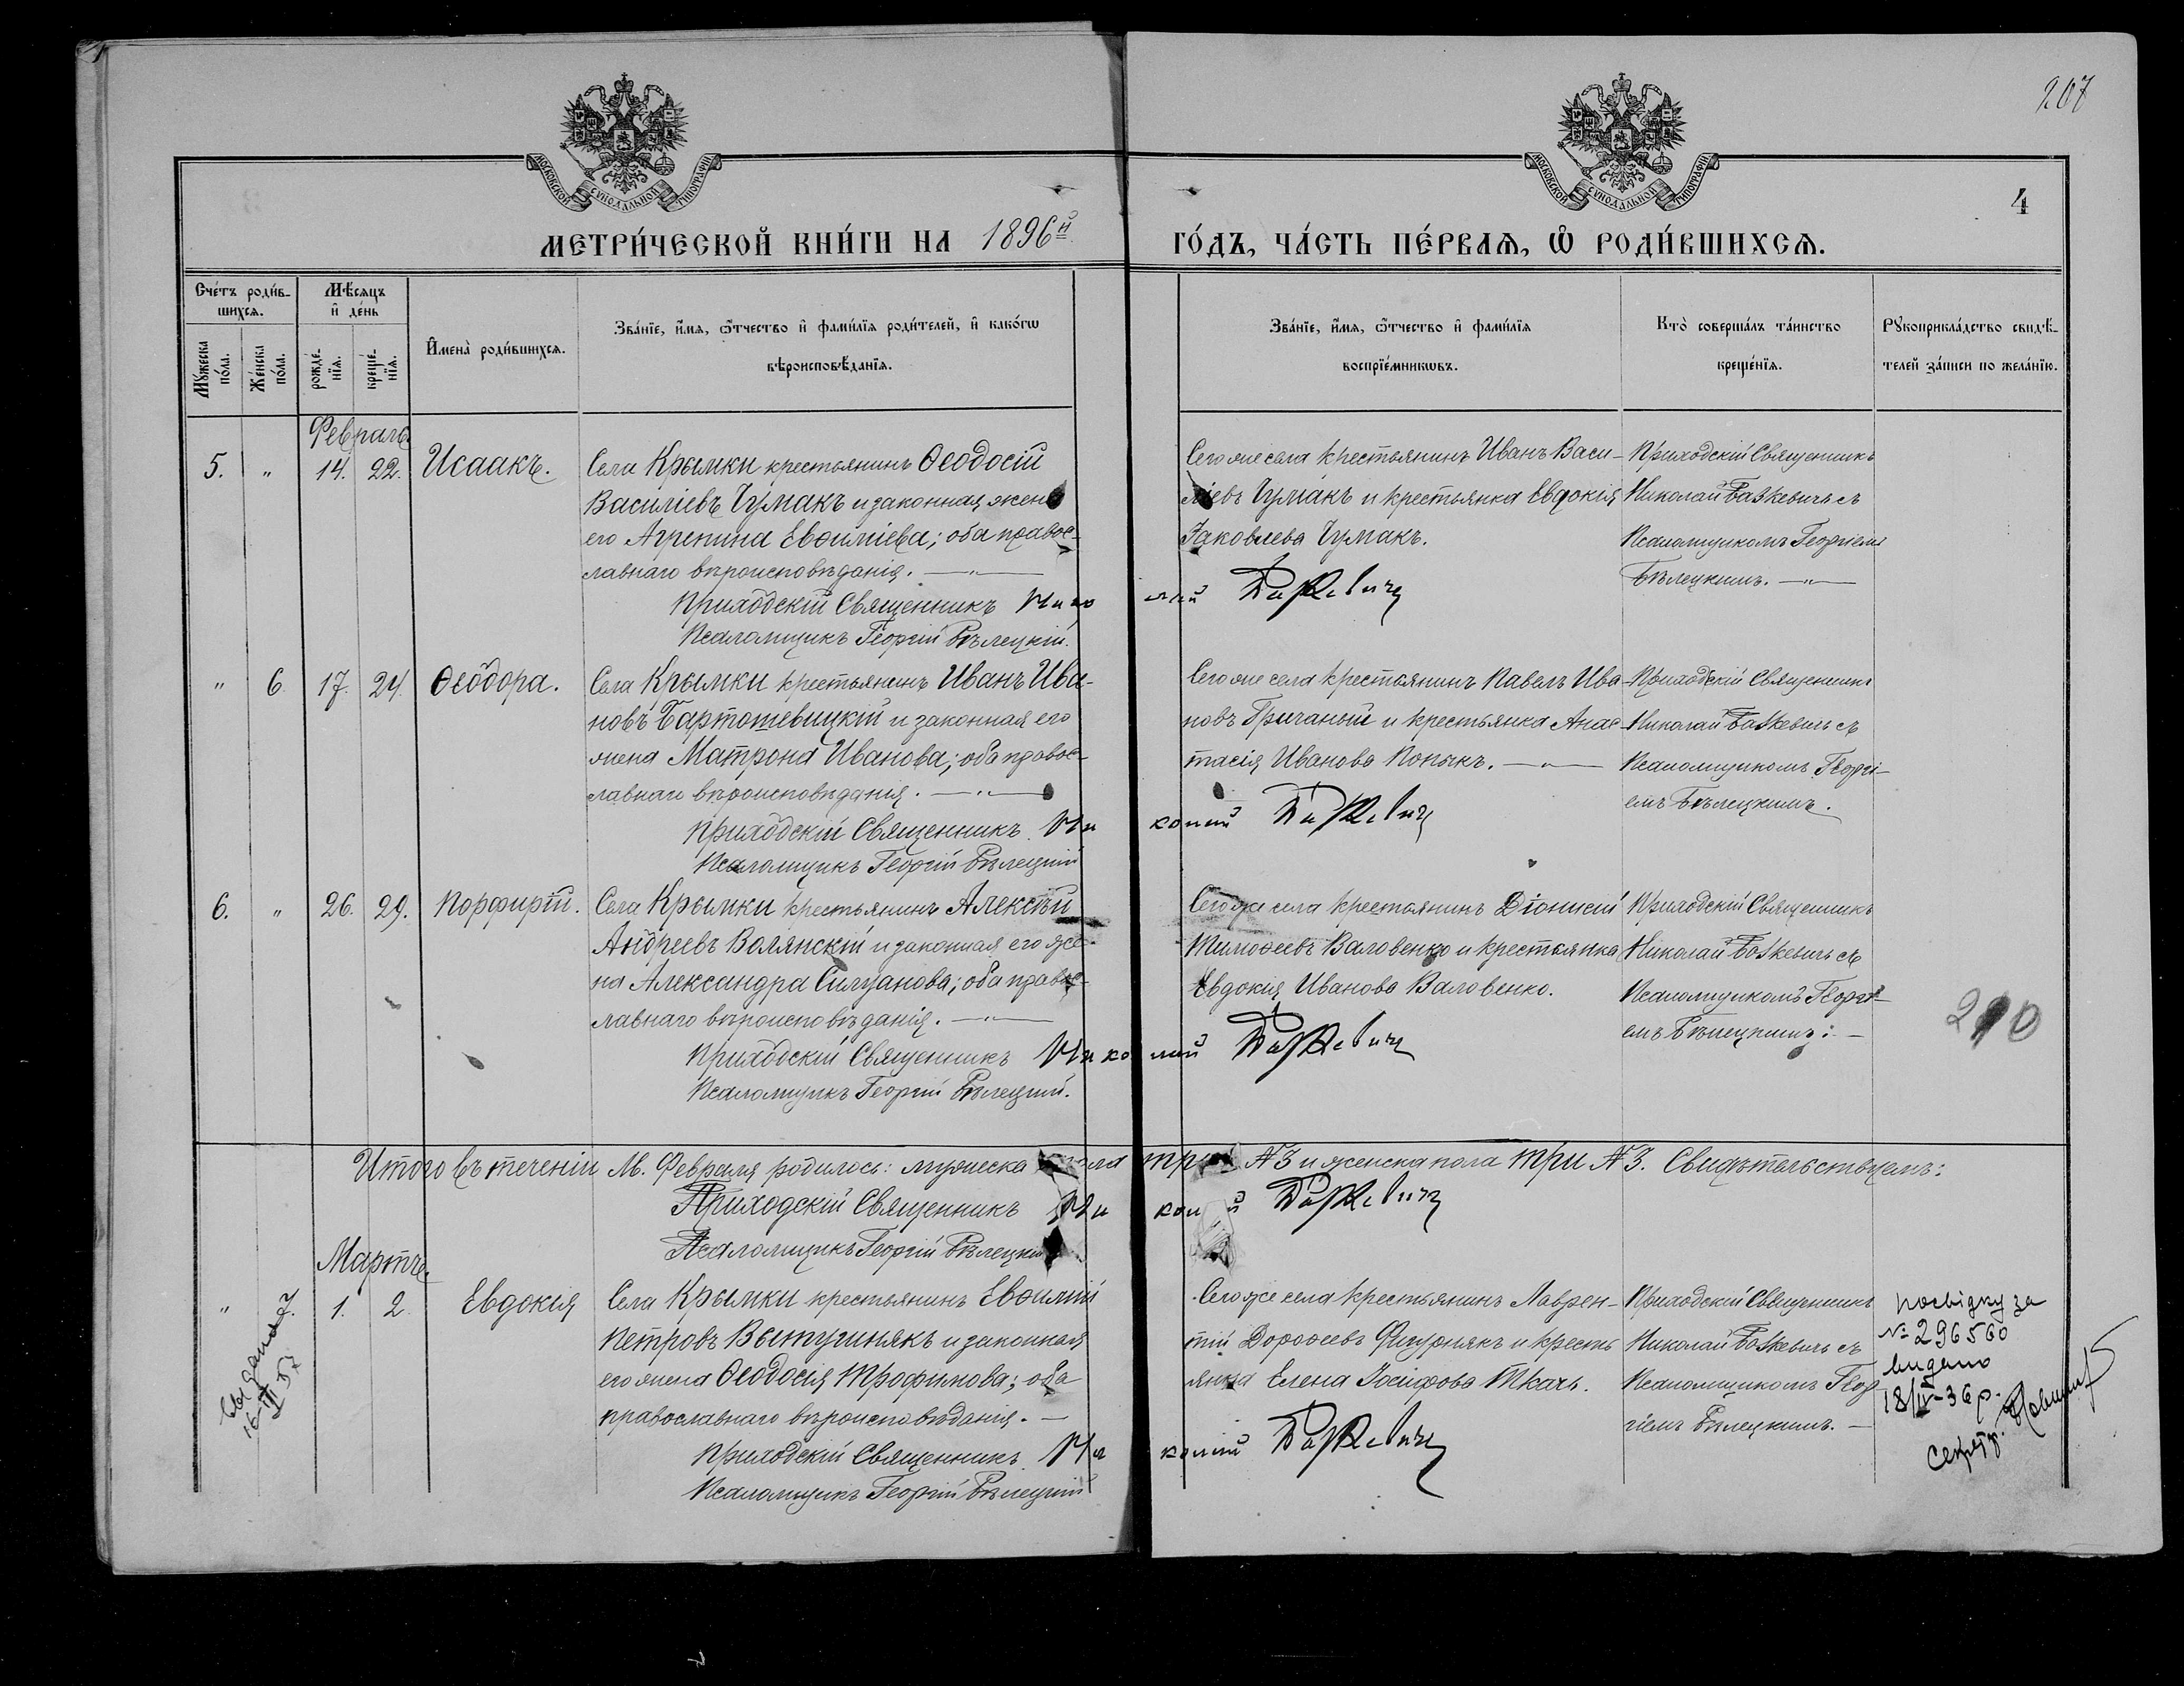 207
4
МОСКОВСКОЙ СѴНОДАЛЬНОЙ ТИПОГРАФІИ
МОСКОВСКОЙ СѴНОДАЛЬНОЙ ТИПОГРАФІИ
МЕТРИ́ЧЕСКОЙ КНИ́ГИ НА 1896й ГО́ДЪ, ЧА́СТЬ ПЕ́РВАѦ, Ѡ҆ РОДИ́ВШИХСѦ.
Сче́тъ роди́в-
шихсѧ.
Мꙋ́жеска по́ла.
Же́нска по́ла.
Мѣ́сѧцъ
и҆ де́нь
рожде́-
нїѧ.
креще́-
нїѧ.
И҆мена̀ роди́вшихсѧ.
Зва́нїе, и҆́мѧ, ѻ҆́тчество и҆ фами́лїѧ роди́телей, и҆ како́гѡ
вѣроисповѣ́данїѧ.
Зва́нїе, и҆́мѧ, ѻ҆́тчество и҆ фами́лїѧ
воспрїе́мникѡвъ.
Кто̀ соверша́лъ та́инство
креще́нїѧ.
Рꙋкоприкла́дство свидѣ́-
телей за́писи по жела́нїю.
Февраль
5. " 14. 22. Исаакъ.
Села Крымки крестьянинъ Ѳеодосій
Василіевъ Чумакъ и законная жена
его Агрепина Евѳиміева; оба правос-
лавнаго вѣроисповѣданія. —"—
Приходскій Священникъ Николай Базкевичъ
Псаломщикъ Георгій Бѣлецкій.
Сего же села крестьянинъ Иванъ Васи-
ліевъ Чумакъ и крестьянка Евдокія
Іаковлева Чумакъ.
Приходскій Священникъ
Николай Базкевичъ съ
Псаломщикомъ Георгіемъ
Бѣлецкимъ. —"—
" 6. 17. 24. Ѳеодора.
Села Крымки крестьянинъ Иванъ Ива-
новъ Бартошевицкій и законная его
жена Матрона Иванова; оба правос-
лавнаго вѣроисповѣданія. —"—
Приходскій Священникъ Николай Базкевичъ
Псаломщикъ Георгій Бѣлецкій
Сего же села крестьянинъ Павелъ Ива-
новъ Гричаной и крестьянка Анас-
тасія Иванова Попыкъ. —"—
Приходскій Священникъ
Николай Базкевичъ съ
Псаломщикомъ Георгі-
емъ Бѣлецкимъ.
6. " 26. 29. Порфирій.
Села Крымки крестьянинъ Алексѣй
Андреевъ Волянскій и законная его же-
на Александра Силуанова; оба правос-
лавнаго вѣроисповѣданія. —"—
Приходскій Священникъ Николай Базкевичъ
Псаломщикъ Георгій Бѣлецкій.
Сего же села крестьянинъ Діонисій
Тимоѳеевъ Валовенко и крестьянка
Евдокія Иванова Валовенко.
Приходскій Священникъ
Николай Базкевичъ съ
Псаломщикомъ Георгі-
емъ Бѣлецкимъ: —
Итого въ теченіи М. Февраля родилось: мужеска пола три №3 и женска пола три №3. Свидѣтельствуемъ:
Приходскій Священникъ Николай Базкевичъ
Псаломщикъ Георгій Бѣлецкій
Мартъ.
" 7. 1. 2. Евдокія
Села Крымки крестьянинъ Евѳимій
Петровъ Вытугинякъ и законная
его жена Ѳеодосія Трофимова; оба
православнаго вѣроисповѣданія. —
Приходскій Священникъ Николай Базкевичъ
Псаломщикъ Георгій Бѣлецкій
Сего же села крестьянинъ Лаврен-
тій Дороѳеевъ Фигурнякъ и кресть
янка Елена Іосифова Ткачъ.
Приходскій Священникъ
Николай Базкевичъ съ
Псаломщикомъ Геор-
гіемъ Бѣлецкимъ. —
посвідку за
№ 296560
видано
18/IV-36 р.
Секрет.
Выдано